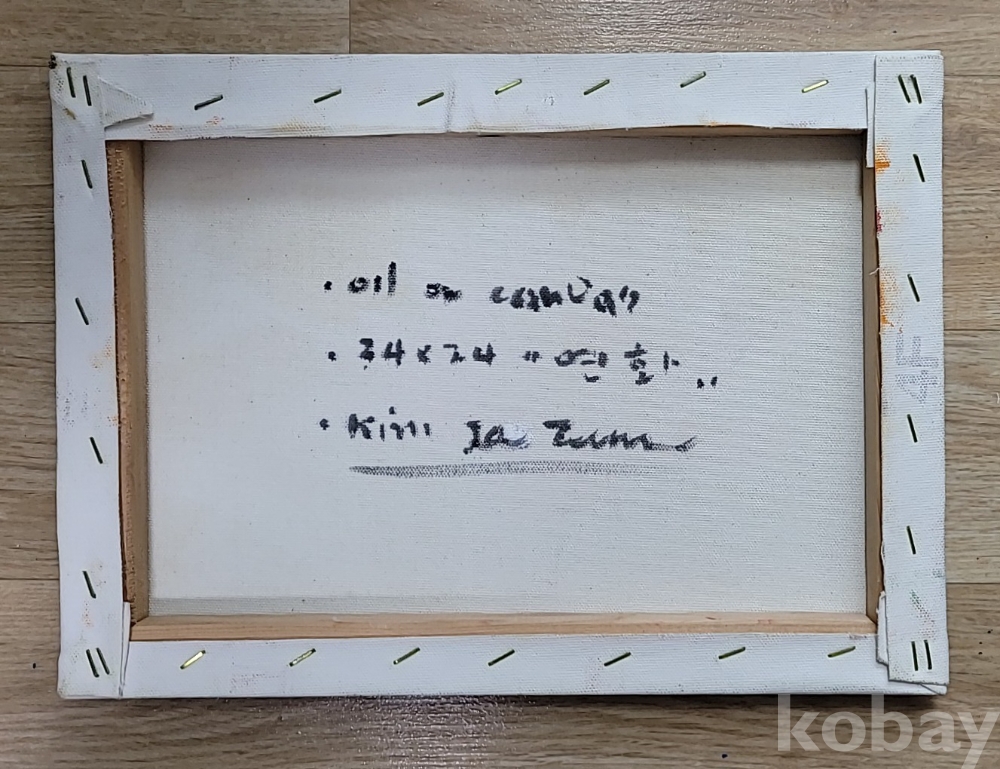 · oil on canvas
· 34 x 24 "연화"
· Kim Ja
4F
kobay